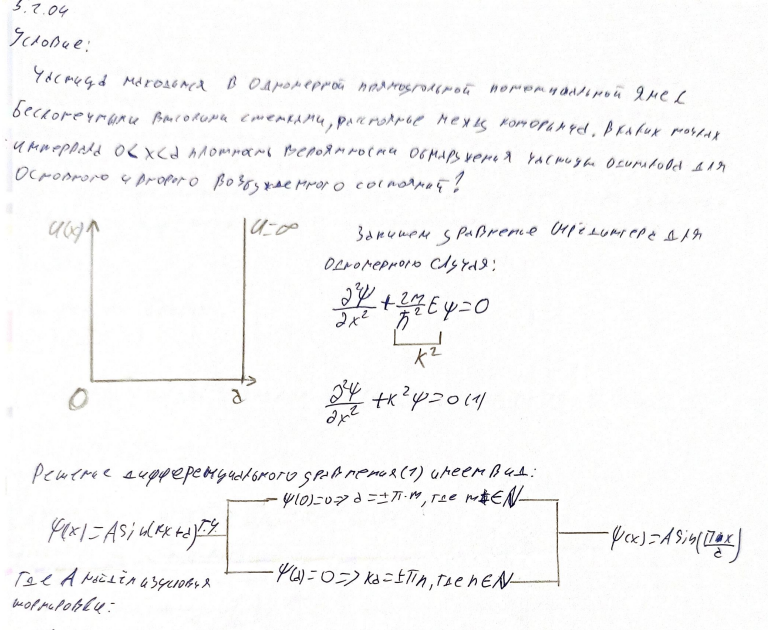 3.2.04
Условие:
Частица находится в одномерной прямоугольной потенциальной яме с
бесконечными высокими стенками, расстояние между которыми a. В каких точках
интервала 0<x<a плотность вероятности обнаружения частицы одинакова для
основного и второго возбужденного состояний?
U(x)
U=∞
0
a
Запишем уравнение Шредингера для
одномерного случая:
∂²Ψ/∂x² + 2m/ħ² Eψ=0
k²
∂²Ψ/∂x² +k²ψ=0 (1)
Решение дифференциального уравнения (1) имеет вид:
ψ(0)=0=> α=±π·m, где m∈N
ψ(x)=Asin(kx+α) т.к
ψ(x)=Asin(πnx/a)
ψ(a)=0=> ka=±πn, где n∈N
где A найдём из условия
нормировки: